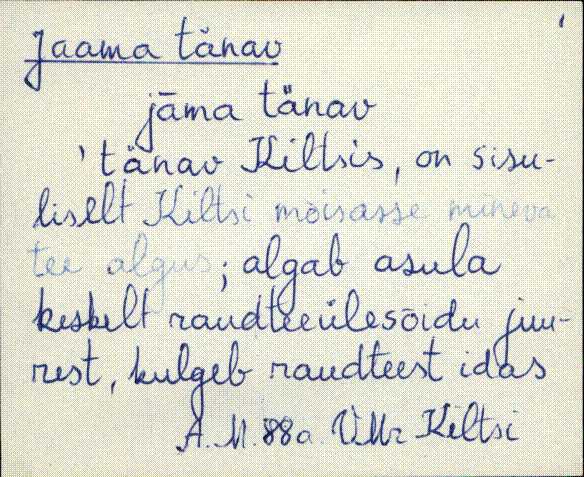 Jaama tänav
jāma tänav
'tänav Kiltsis, on sisu-
liselt Kiltsi mõisasse mineva
tee algus; algab asula
keskelt raudteeülesõidu juu-
rest, kulgeb raudteest idas
A.M. 88a. VMr Kiltsi